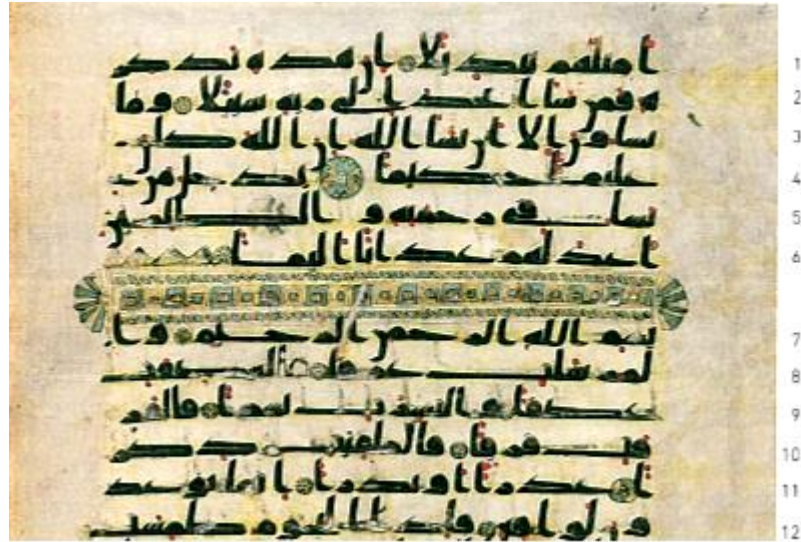 1 امثلهم تبديلا ان هذه تذكر
2 ة فمن شا اتخذ الى ربه سبيلا وما
3 تشاون الا ان يشا الله ان الله كان
4 عليما حكيما يدخل من
5 يشا في رحمته والظلمين
6 اعد لهم عذابا اليما
7 بسم الله الرحمن الرحيم وا
8 لمرسلت عرفا فالعصفت
9 عصفا والنشرت نشرا فالفر
10 قت فرقا فالملقيت ذكر
11 ا عذرا او نذرا انما توعد
12 ون لوقع فاذا النجوم طمست